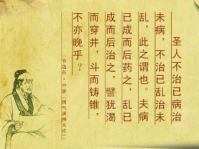 圣人不治已病治
未病，不治已乱治未
乱，此之谓也。夫病
已成而后药之，乱已
成而后治之，譬犹渴
而穿井，斗而铸锥，
不亦晚乎？